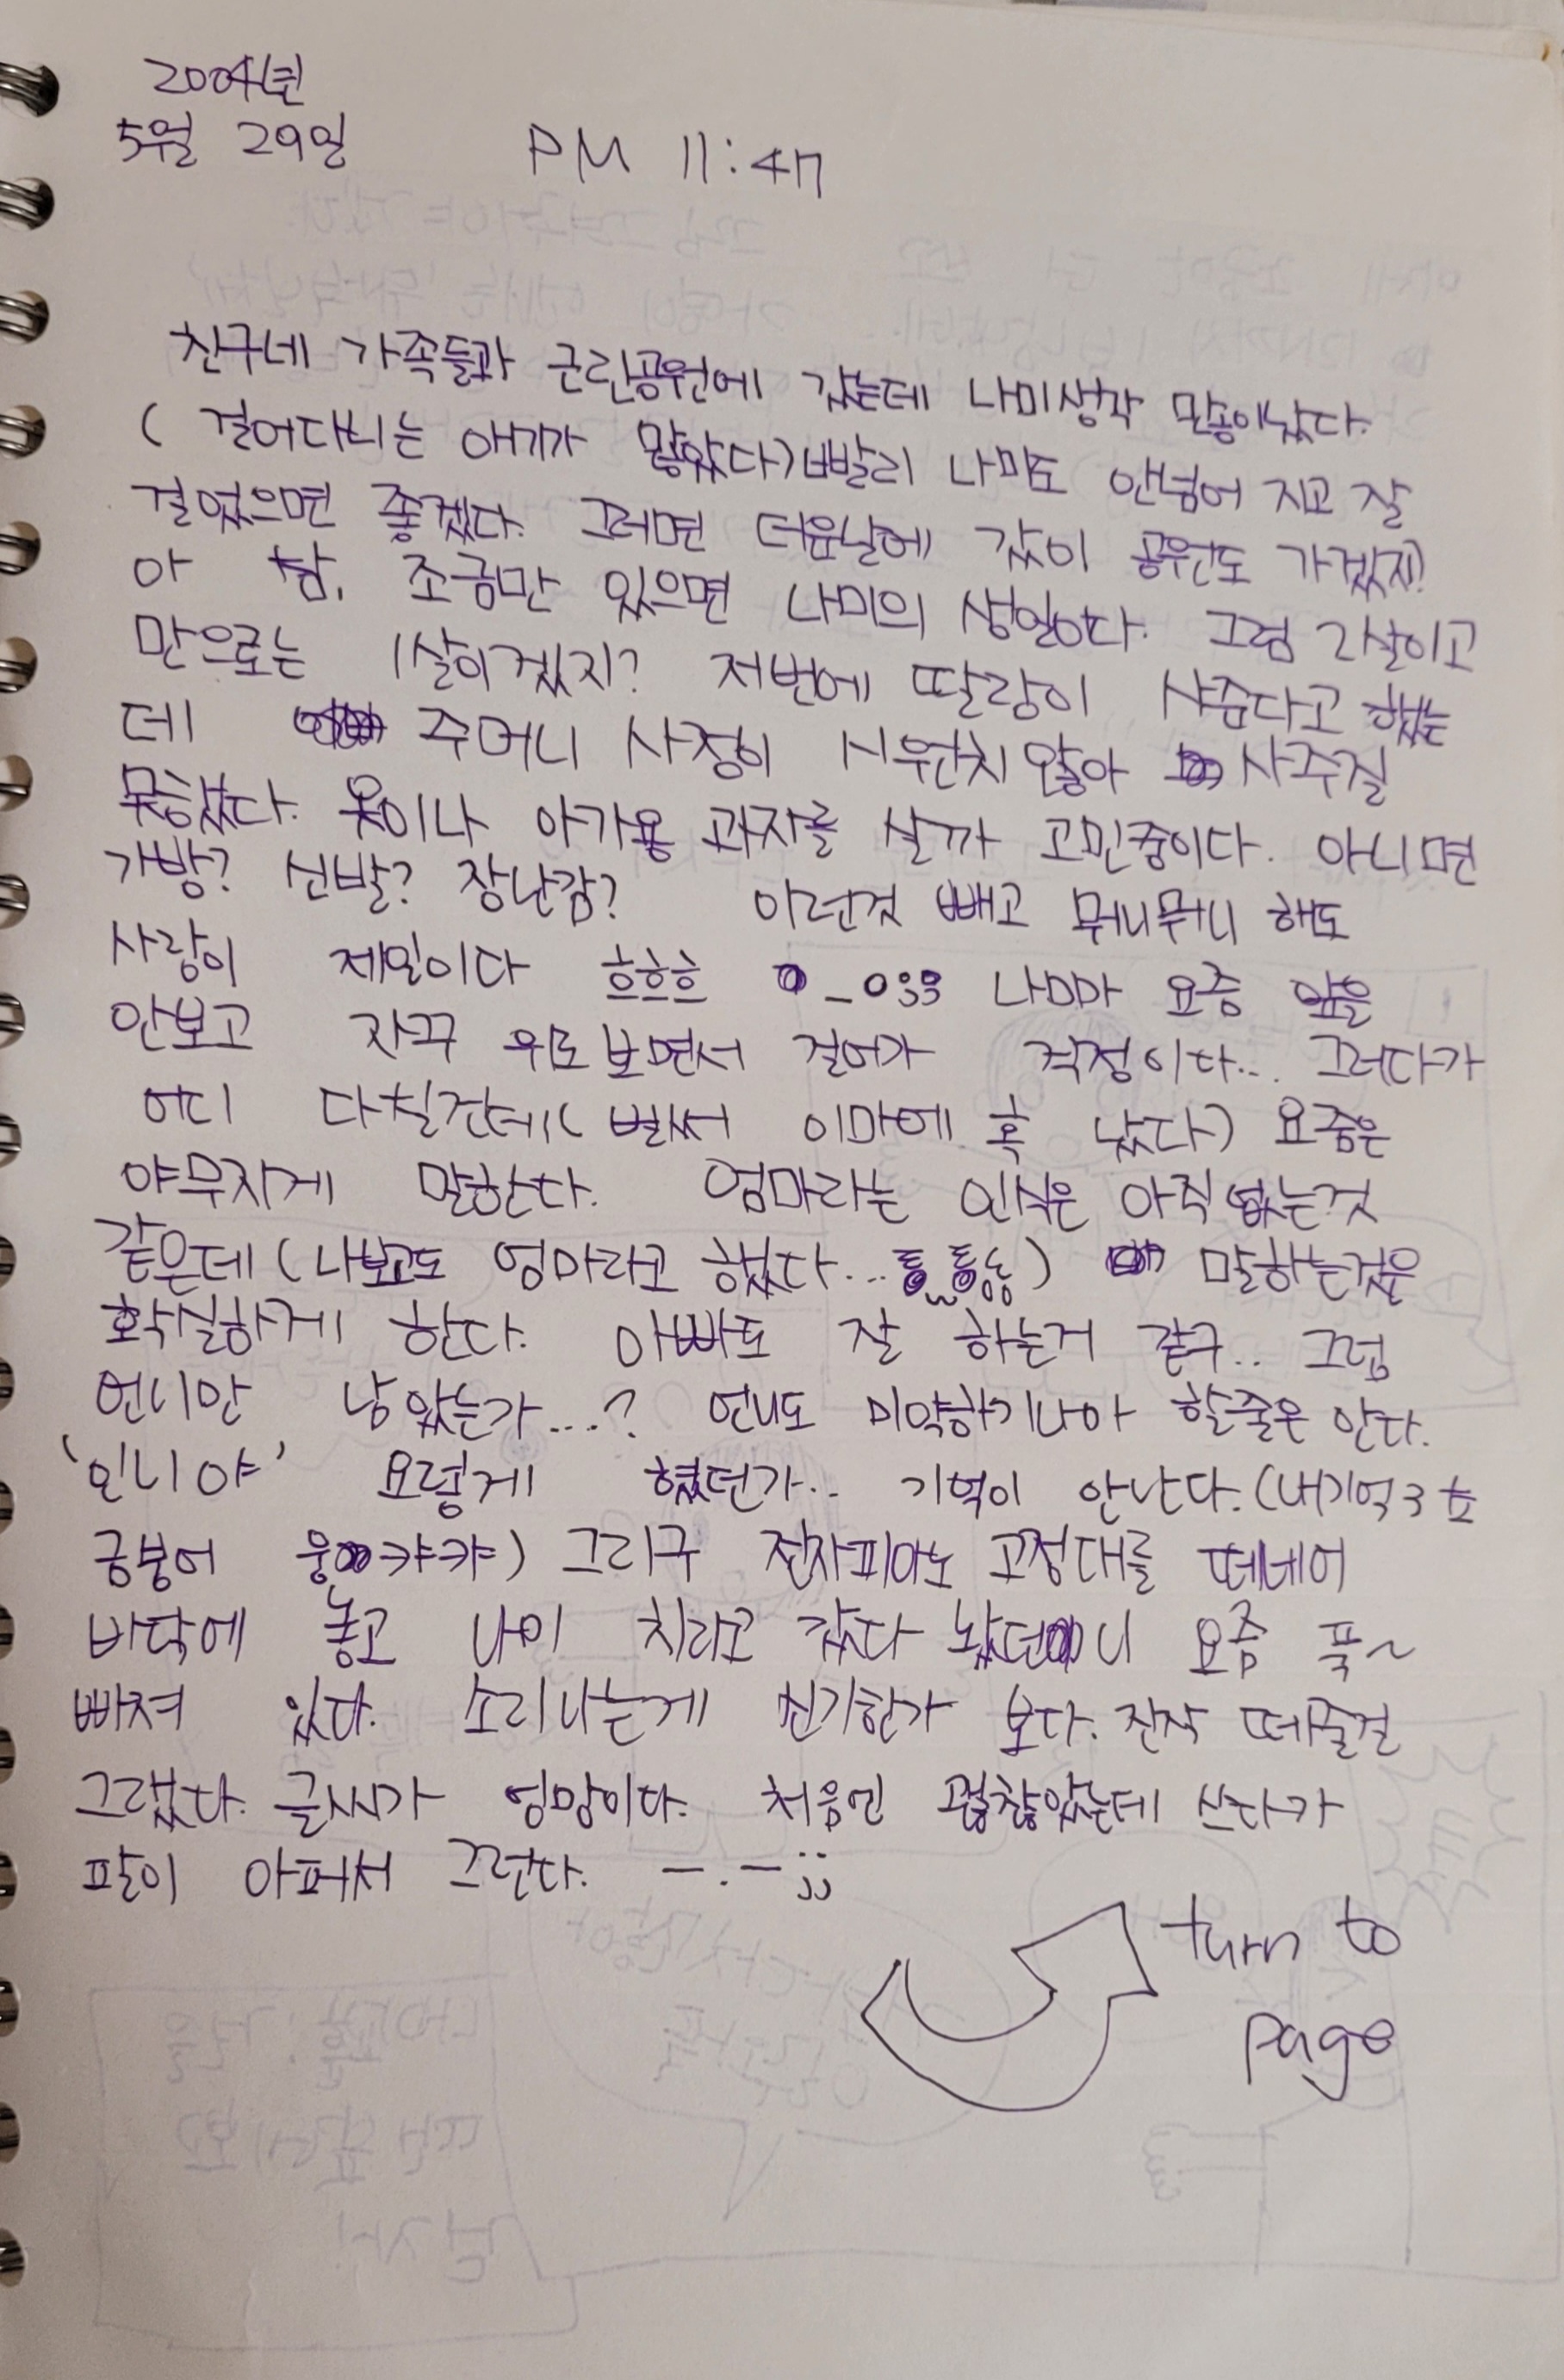 2004년
5월 29일 PM 11:47
친구네 가족들과 근린공원에 갔는데 나미생각 많이났다.
( 걸어다니는 애기가 많았다) 빨리 나미도 안넘어 지고 잘
걸었으면 좋겠다. 그러면 더운날에 같이 공원도 가겠지?
아 참, 조금만 있으면 나미의 생일이다. 그럼 2살이고
만으로는 1살이겠지? 저번에 딸랑이 사준다고 했는
데 주머니 사정이 시원치 않아 사주질
못했다. 옷이나 아가용 과자를 살까 고민중이다. 아니면
가방? 신발? 장난감? 이런것 빼고 뭐니뭐니 해도
사랑이 제일이다 흐흐흐 0_0;; 나미가 요즘 앞을
안보고 자꾸 위로 보면서 걸어가 걱정이다... 그러다가
어디 다칠건데( 벌써 이마에 혹 났다) 요즘은
야무지게 말한다. 엄마라는 인식은 아직 없는것
같은데 (나보고도 엄마라고 했다...) 말하는것은
확실하게 한다. 아빠도 잘 하는거 같구.. 그럼
언니만 남았는가....? 언니도 미약하기나마 할줄은 안다.
'인니야' 요렇게 했던가.. 기억이 안난다. (내기억 3초
금붕어 웅캬캬) 그리구 전자피아노 고정대를 떼네어
바닥에 놓고 나미 치라고 갔다 놨더니 요즘 푹~
빠져 있다. 소리나는게 신기한가 보다. 진작 떼줄걸
그랬다. 글씨가 엉망이다. 처음엔 괞찮았는데 쓰다가
팔이 아퍼서 그런다. -.-;;
turn to
page